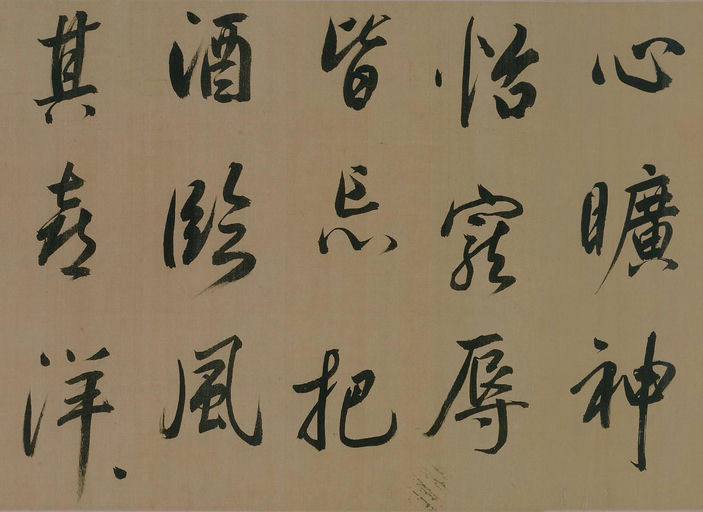 心曠神
怡寵辱
皆忘把
酒臨風
其喜洋〻